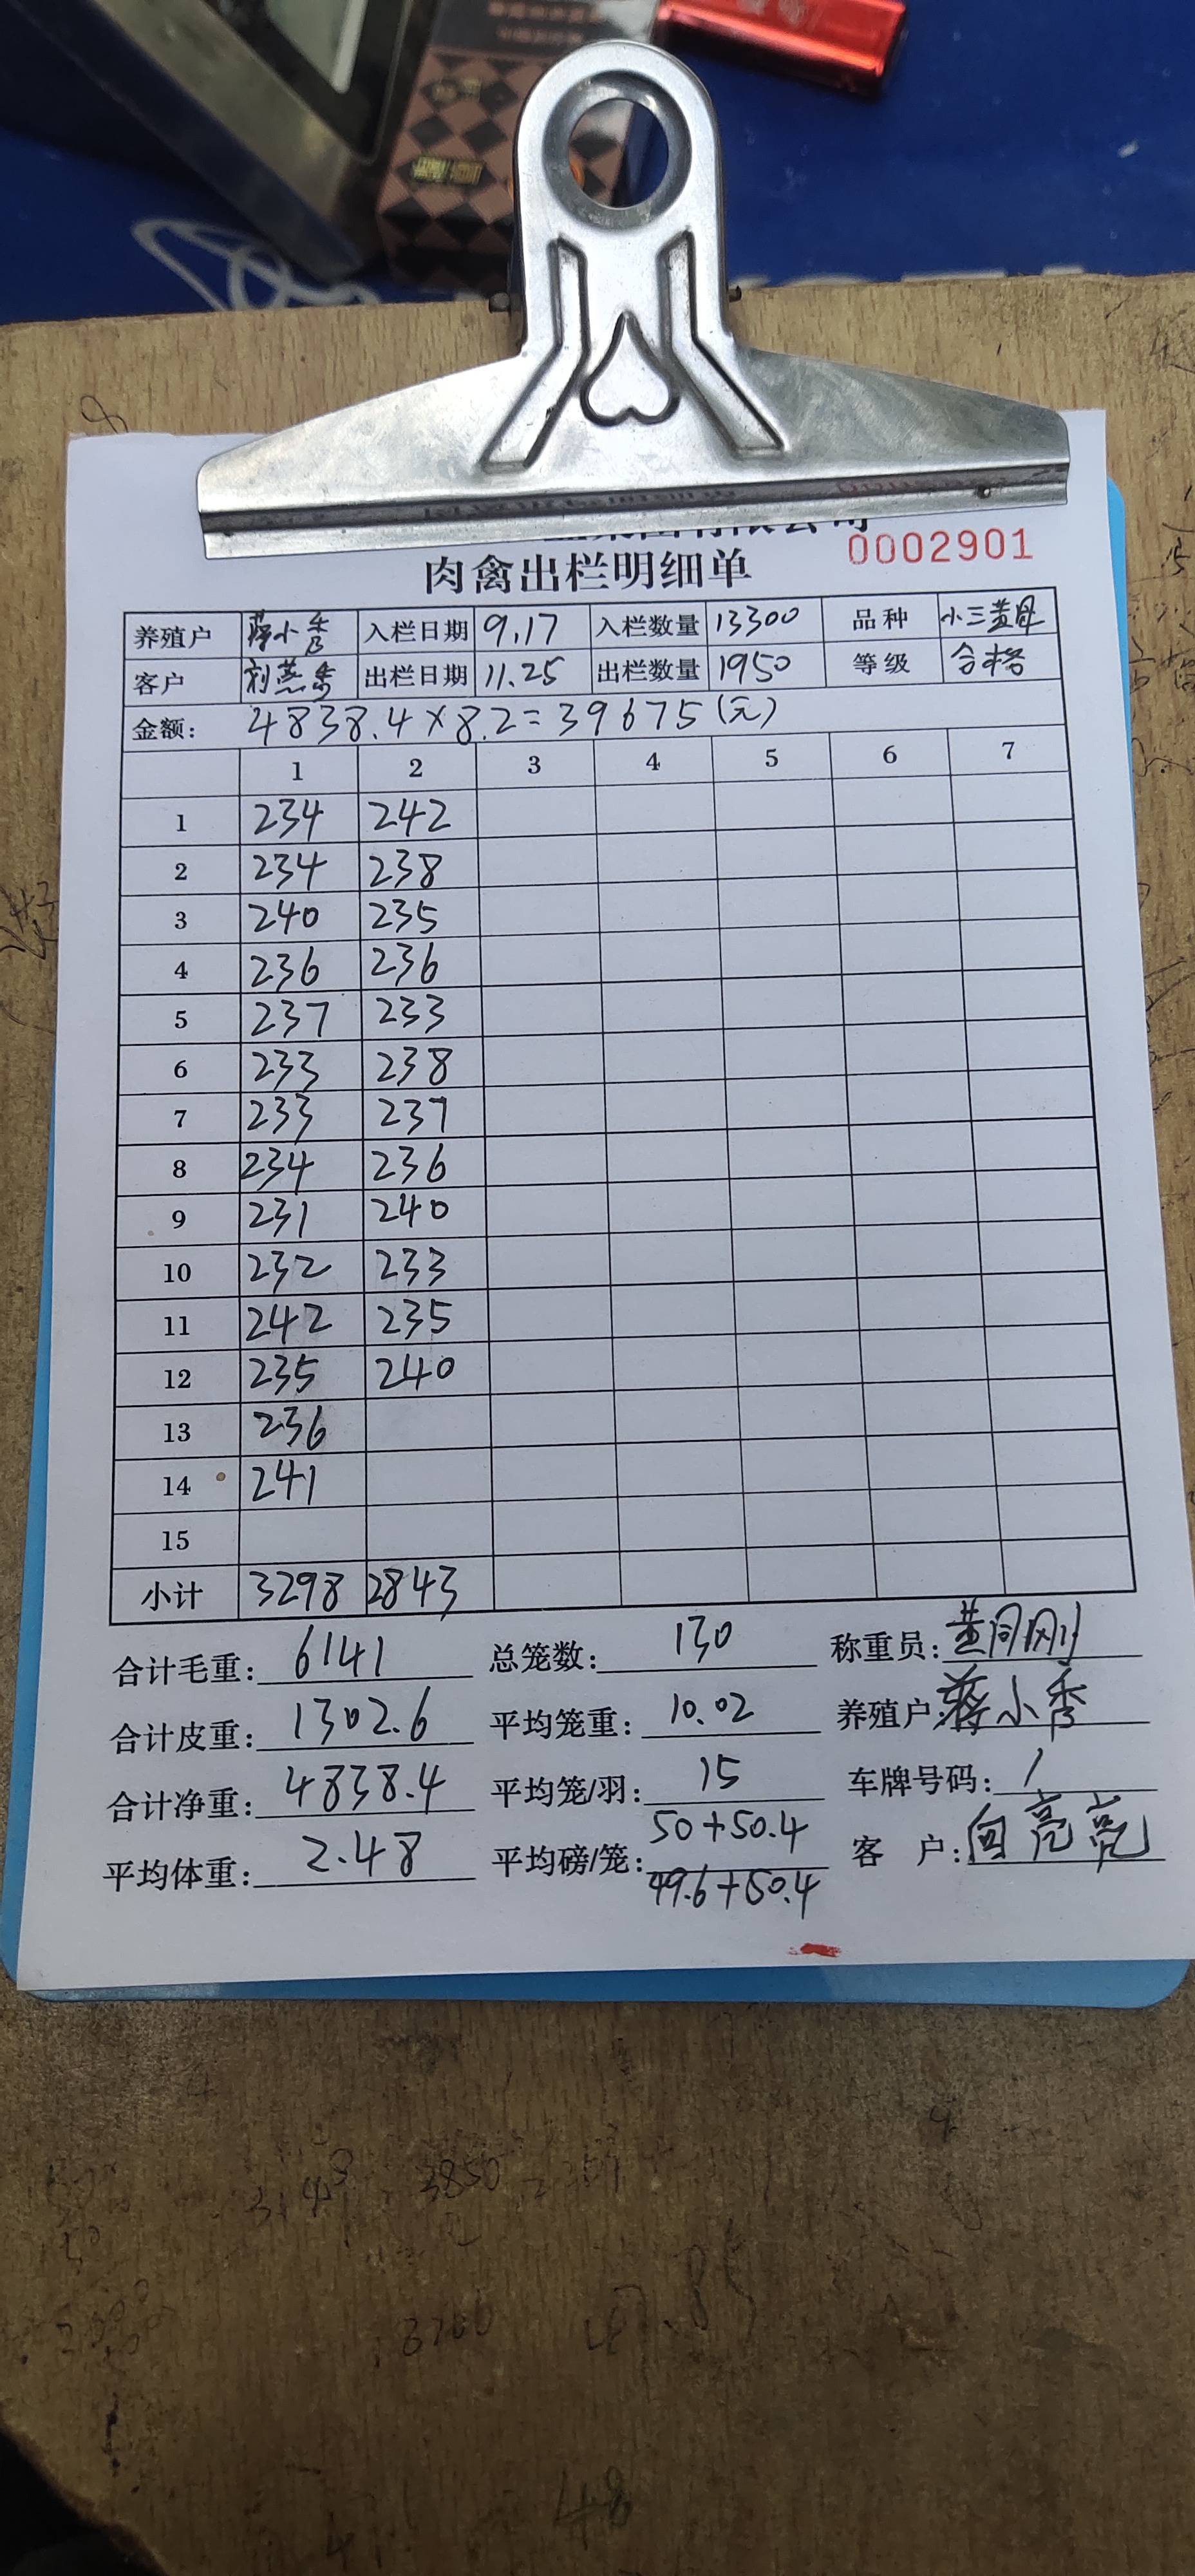 0002901
肉禽出栏明细单
养殖户 蒋小香 入栏日期 9.17 入栏数量 13300 品种 小三黄母
客户 刘燕香 出栏日期 11.25 出栏数量 1950 等级 合格
金额: 4838.4×8.2=39675(元)
1 2 3 4 5 6 7
1 234 242
2 234 238
3 240 235
4 236 236
5 237 233
6 233 238
7 233 237
8 234 236
9 231 240
10 232 233
11 242 235
12 235 240
13 236
14 241
15
小计 3298 2843
合计毛重: 6141 总笼数: 130 称重员: 黄同刚
合计皮重: 1302.6 平均笼重: 10.02 养殖户: 蒋小香
合计净重: 4838.4 平均笼/羽: 15 车牌号码: /
平均体重: 2.48 平均磅/笼: 50+50.4 客户: 向亮亮
49.6+50.4